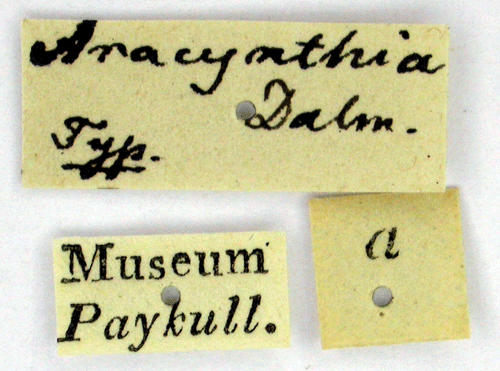 Aracynthia
Dalm.
Typ.
Museum
Paykull.
a